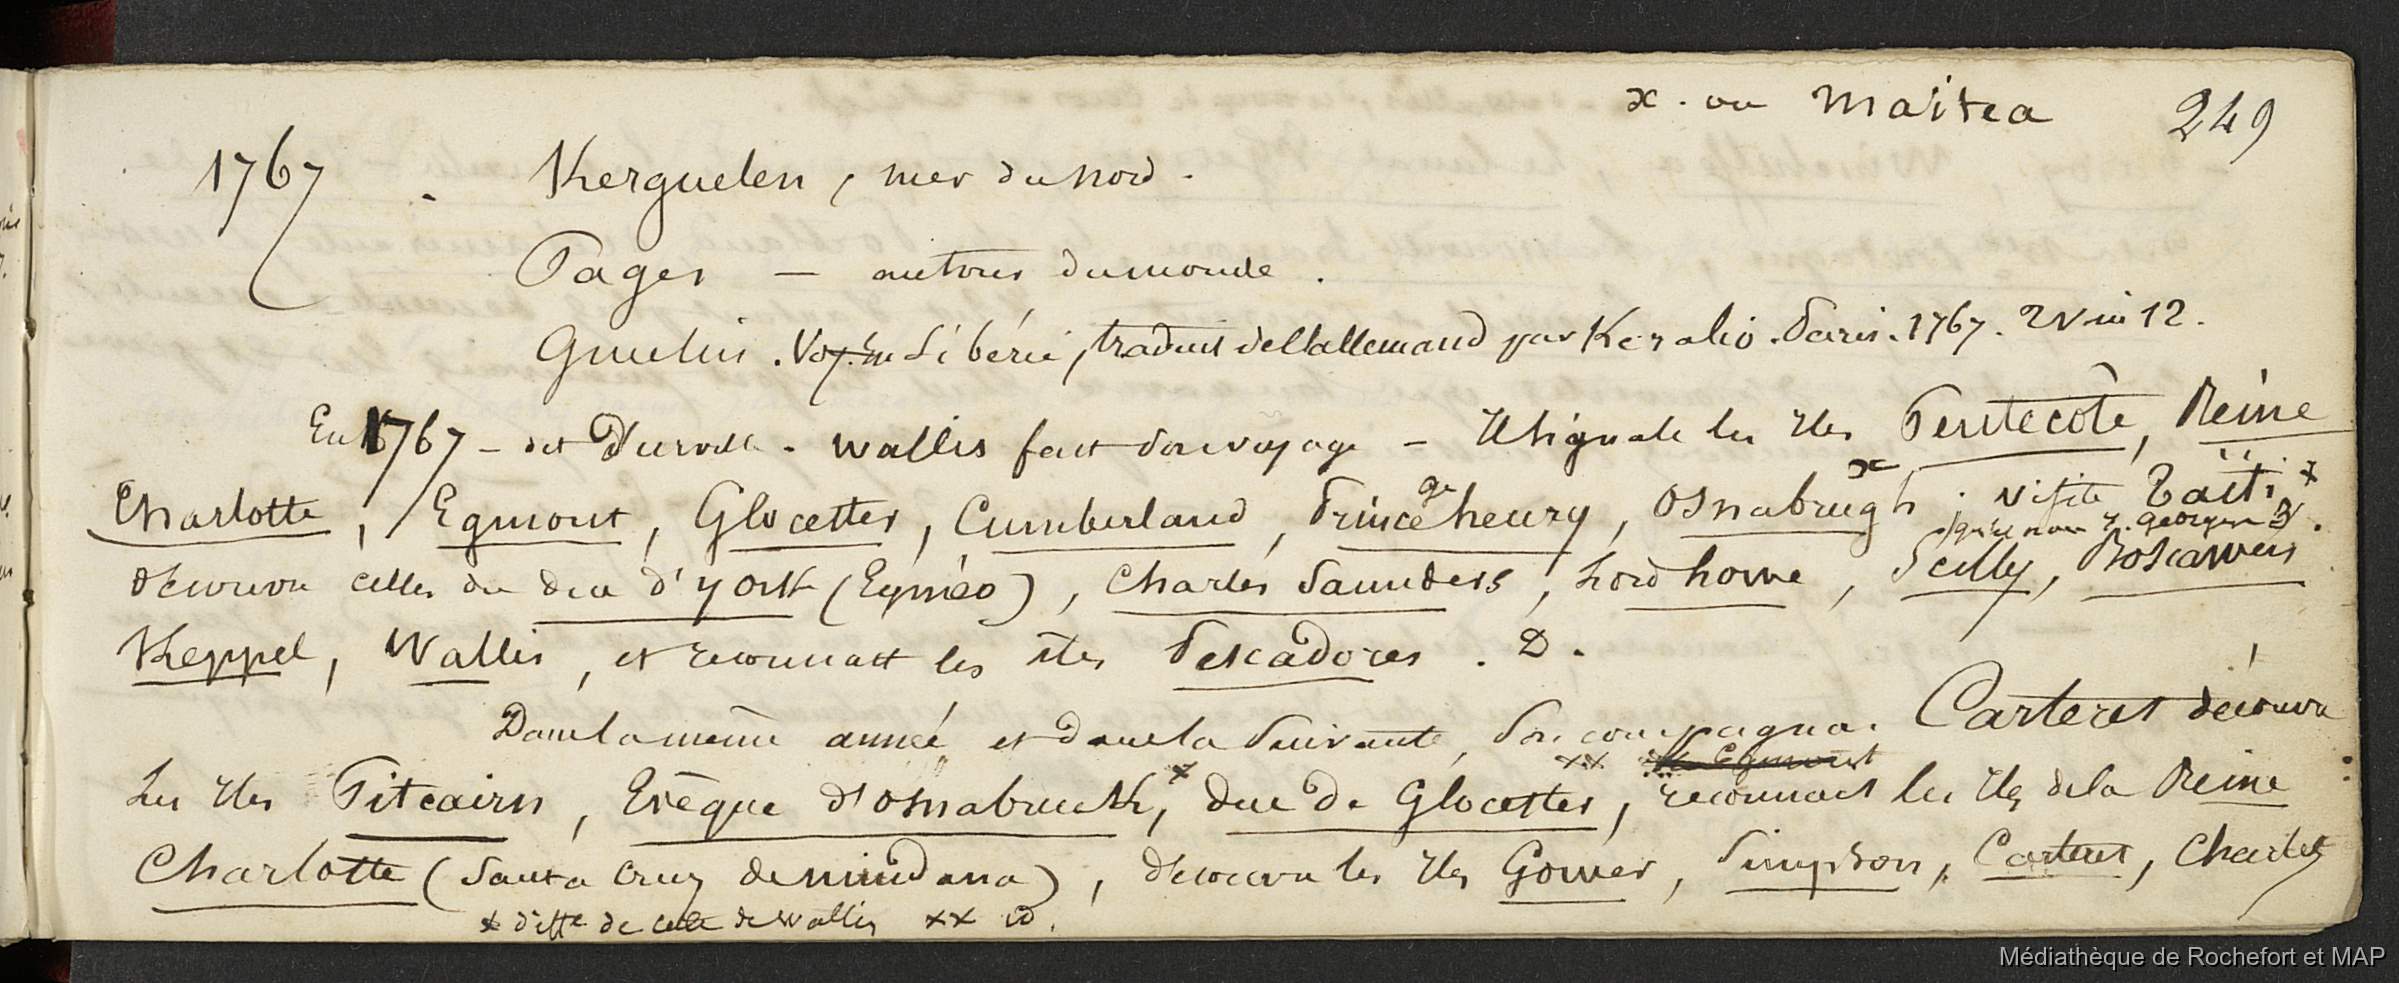 x. ou Maitea 249
1767 . Kerguelen, mer du nord.
Pages — autour du monde.
Gmelin. Voy. en Sibérie, traduit de l'allemand par Keralio. Paris. 1767. 2 V in 12.
En 1767 — dit D'Urville. Wallis fait son voyage — Il signale les Iles Pentecôte, Reine
Charlotte, Egmont, Glocester, Cumberland, Prince henry, Osnabrugh x ; visite Taïti x
qu'il nom I. Georges 3.
découvre celles du duc d'York (Eyméo), Charles Saunders, Lord howe, Scilly, Boscawen
Keppel, Wallis, et reconnait les îles Pescadores. D.
Dans la même année et dans la suivante, son compagnon Carteret découvre
xx Egmont
les Iles Pitcairn, Evêque d'Osnabruck, x duc de Glocester, reconnait les Iles de la Reine
Charlotte (Santa Cruz de mindana), découvre les Iles Gower, Simpson, Carteret, Charles
x diffte de celle de Wallis xx id.
Médiathèque de Rochefort et MAP